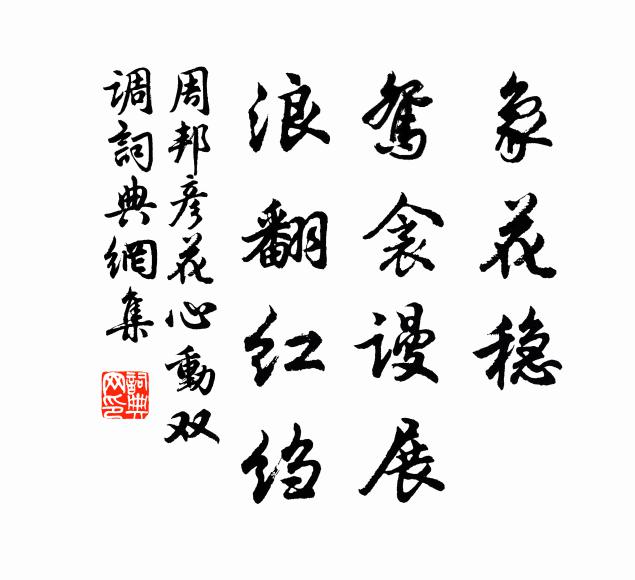 象花稳
鴛衾谩展
浪翻红绉
周邦彦花心動双
调詞典網集
詞典网印